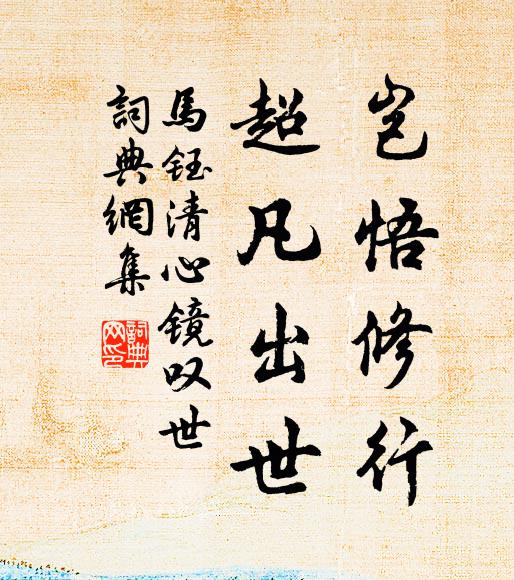 岂悟修行
超凡出世
馬鈺清心镜叹世
詞典網集
詞典
网印